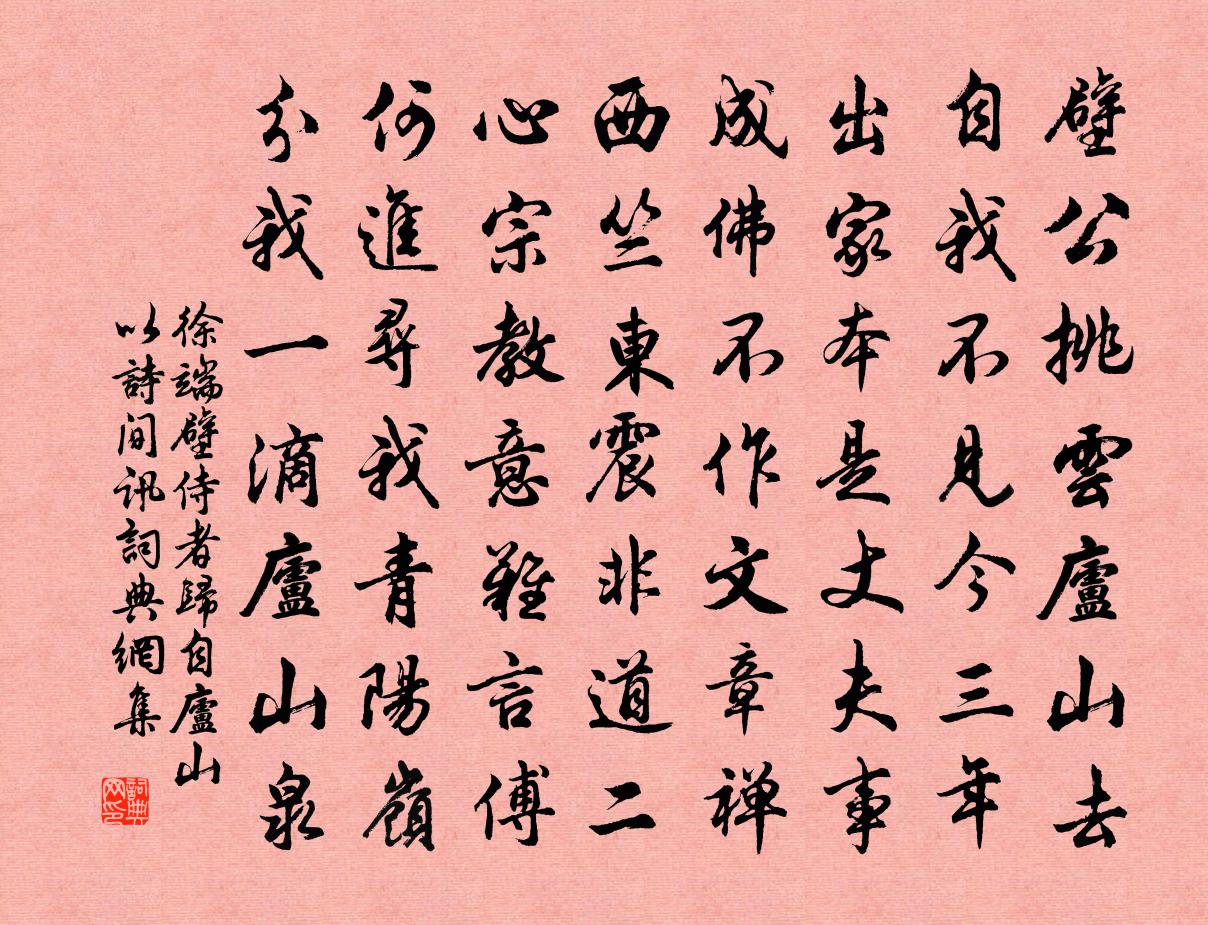 壁公挑雲廬山去
自我不見今三年
出家本是丈夫事
成佛不作文章禅
西竺東震非道二
心宗教意難言傅
何進尋我青陽嶺
分我一滴廬山泉
徐端壁侍者歸自廬山
以詩間訊詞典網集
詞典
网印